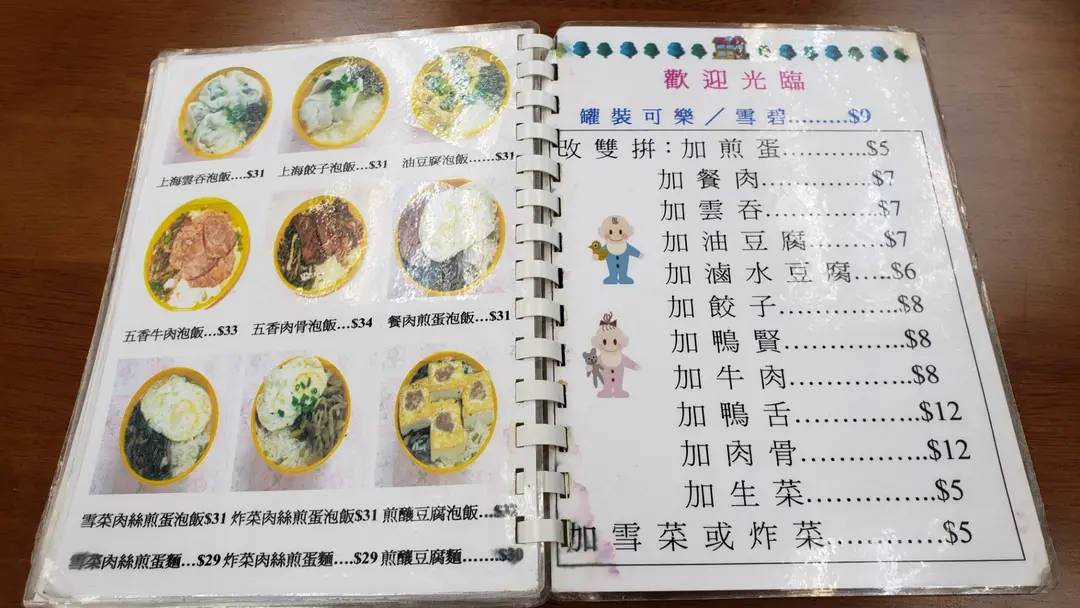 上海雲吞泡飯....$31 上海餃子泡飯...$31 油豆腐泡飯......$31
五香牛肉泡飯...$33 五香肉骨泡飯...$34 餐肉煎蛋泡飯...$31
雪菜肉絲煎蛋泡飯$31 炸菜肉絲煎蛋泡飯$31 煎釀豆腐泡飯...
雪菜肉絲煎蛋麵...$29 炸菜肉絲煎蛋麵....$29 煎釀豆腐麵.......$30
歡迎光臨
罐裝可樂／雪碧.........$9
改雙拼：加煎蛋...........$5
加餐肉.............$7
加雲吞.............$7
加油豆腐.........$7
加滷水豆腐.....$6
加餃子..............$8
加鴨賢..............$8
加牛肉..............$8
加鴨舌..............$12
加肉骨..............$12
加生菜..............$5
加雪菜或炸菜.............$5